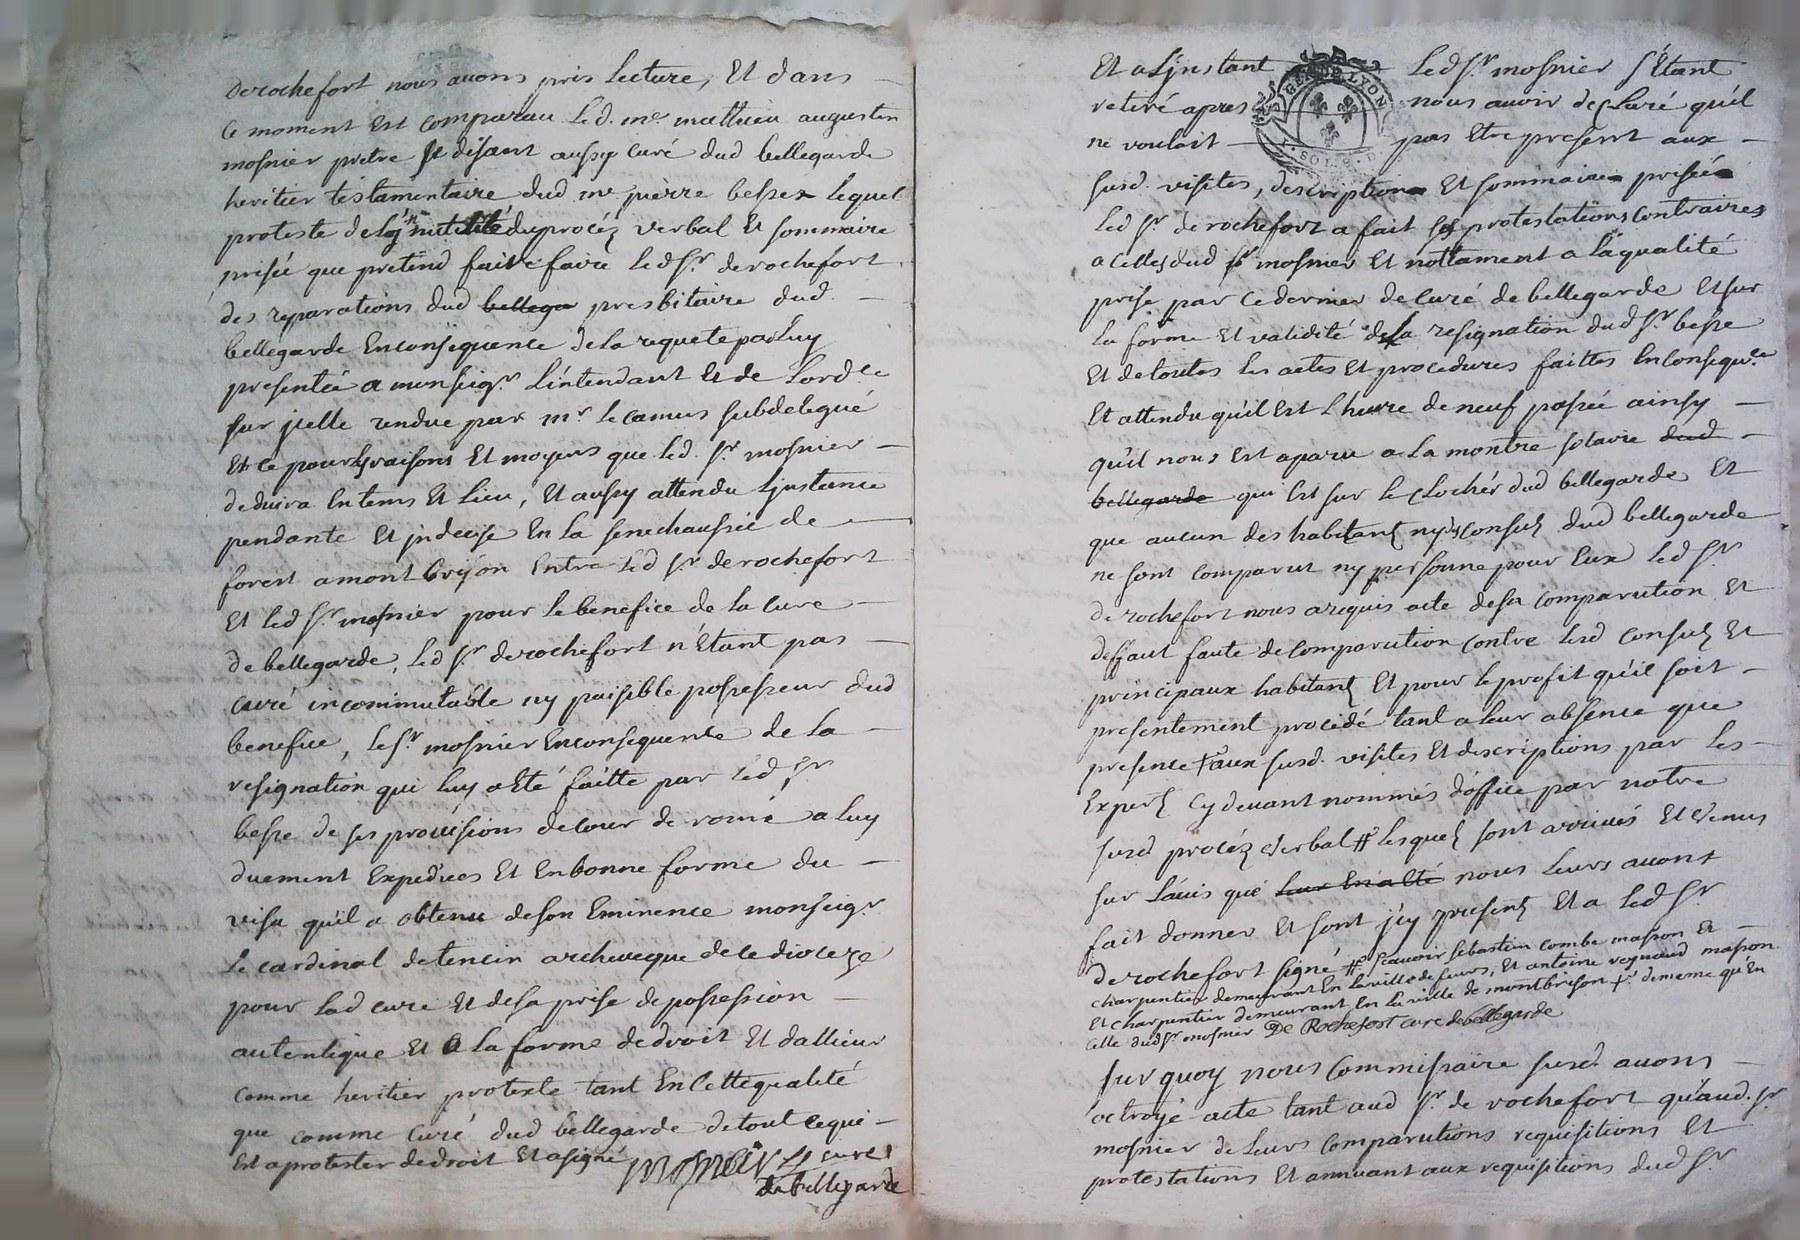 Derochefort nous avons pris Lecture, Et dans
Ce moment Est comparau Led. me. mathieu augustin
mosnier pretre se disant aussy Curé dud bellegarde
heritier testamentaire dud me pierre besse lequel
proteste de du procéz verbal Et sommaire
prisée que pretend faire faire led Sr. derochefort
des reparations dud bellega presbitaire dud.
bellegarde Enconsequence dela requete par Luy
presentée a monseigr. Lintendant Et de Lordce
sur jcelle rendue par mr le camus subdelegué
Et ce pour les raisons Et moyens que led. Sr. mosnier
deduira En tems Et Lieu, Et aussy attendu Ljnstance
pendante Et jndecise En La senechaussée de
forest a montbrison Entre Led Sr derochefort
Et led Sr. mosnier pour le benefice de la Cure
de bellegarde, led Sr. derochefort n'Etant pas
curé incommutable ny paisible possesseur dud
benefice, le Sr. mosnier Enconsequence de la
resignation qui luy a Eté faitte par led Sr
besse de ses provisions de Cour de rome a luy
duement Expediees Et Enbonne forme du
visa quil a obtenu deson Eminence monseigr.
Le cardinal detencin archeveque dece dioceze
pour lad cure Et desa prise depossession
autentique Et a la forme dedroit Et dallieur
comme heritier proteste tant En Cette qualité
que comme Curé dud bellegarde de tout ce qui
Est a protester dedroit Et a signé mosnier curé
de bellegarde
Et a Ljnstant Led Sr. mosnier s'Etant
GEN. DE LYON
retiré apres nous avoir declaré qu'il
ne vouloit pas Etre present aux
SOL. 8. D.
susd. visites, description Et sommaire prisée
Led Sr. derochefort a fait ses protestations contraires
a Celles dud Sr mosnier Et nottament a la qualité
prise par ce dernier de Curé de bellegarde Et sur
la forme Et validité dela resignation dud Sr. besse
Et de toutes les actes Et procedures faittes En Consequce
Et attendu qu'il Est Lheure de neuf passée ainsy
qu'il nous Est aparu a la montre solaire dud
bellegarde qui Est sur le Clocher dud bellegarde Et
que aucun des habitants ny les consuls dud bellegarde
ne sont comparut ny personne pour Eux Led Sr
derochefort nous a requis acte desa comparution Et
deffaut faute de Comparution contre lesd Consuls Et
principaux habitants Et pour le profit qu'il soit
presentement procédé tant a leur absence que
presence aux susd. visites Et descriptions par les
Experts Cy devant nommés d'office par notre
susd procéz verbal # lesquels sont arrivés Et venus
sur Lavis que leur En a Eté nous leurs avons
fait donner Et sont jcy presents Et a Led Sr
derochefort signé # scavoir sebastien combe masson Et
charpentier demeurant En la ville de feurs, Et antoine reynaud masson
Et charpentier demeurant En la ville de montbrison +. de meme qu'En
Celle dud Sr mosnier De Rochefort curé de bellegarde
sur quoy nous Commissaire susd. avons
octroyé acte tant aud Sr. de rochefort qu'aud. Sr
mosnier de leurs Comparutions requisitions Et
protestations Et annuant aux requisitions dud Sr.